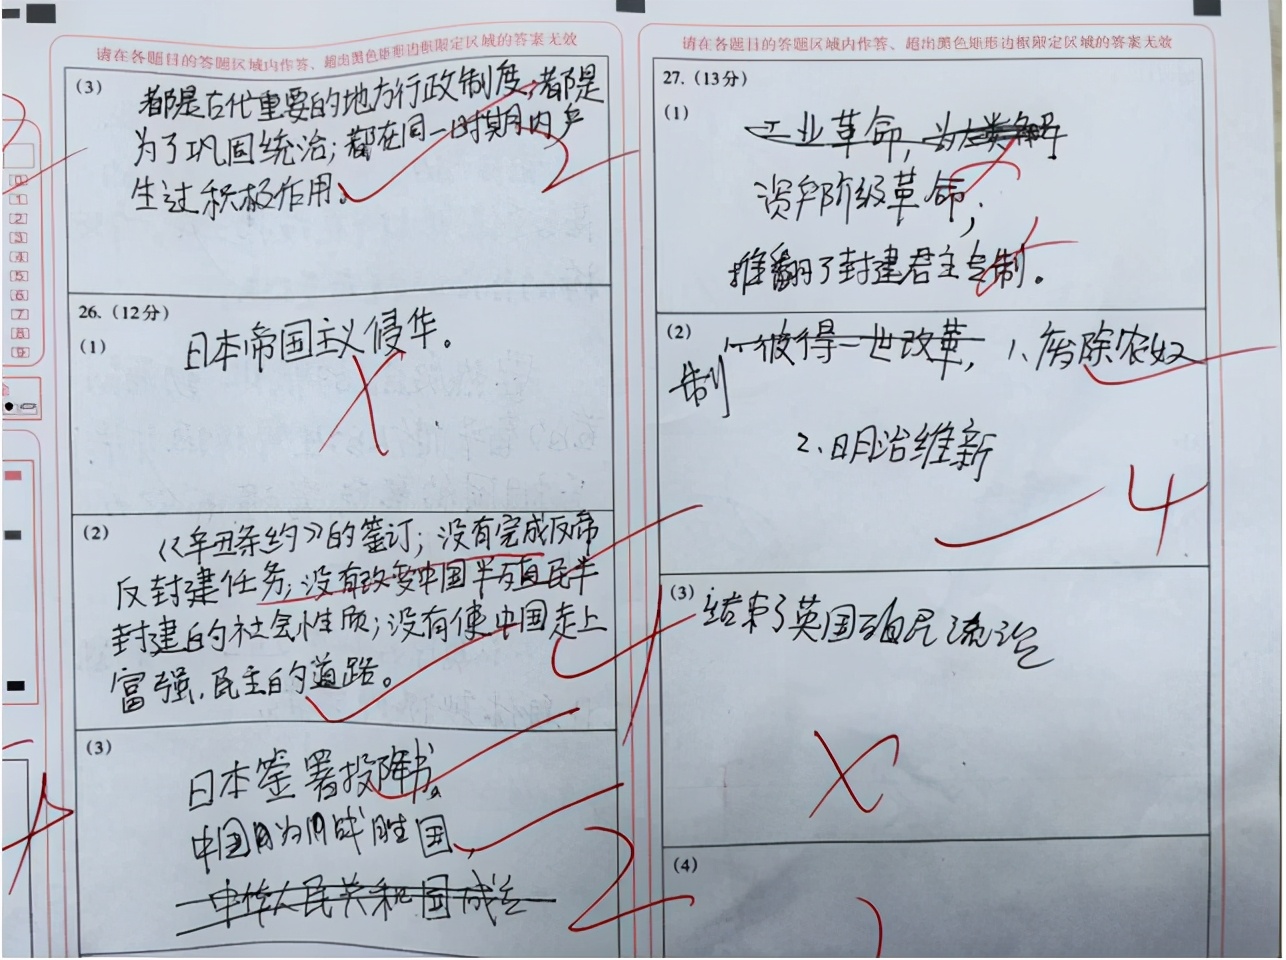 请在各题目的答题区域内作答、超出黑色矩形边框限定区域的答案无效
(3)
都是古代重要的地方行政制度;都是
为了巩固统治;都在同一时期内产
生过积极作用。
2
0
1
2
3
4
5
6
7
8
9
26.(12分)
(1)
日本帝国主义侵华。
(2)
《辛丑条约》的签订;没有完成反帝
反封建任务;没有改变中国半殖民半
封建的社会性质;没有使中国走上
富强、民主的道路。
(3)
日本签署投降书。
中国成为战胜国,
中华人民共和国成立
2
请在各题目的答题区域内作答、超出黑色矩形边框限定区域的答案无效
27.(13分)
(1)
工业革命,
资产阶级革命;
推翻了封建君主专制。
(2)
1、彼得一世改革, 1、废除农奴
制
2、明治维新
4
(3)
结束了英国殖民统治
(4)